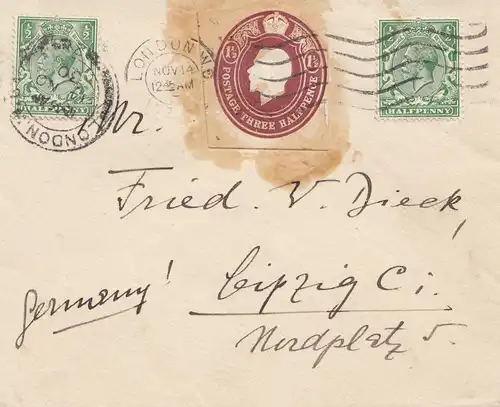 LONDON W6
NOV 14
12 45 AM
POSTAGE THREE HALFPENCE
1½ 1½
½ ½
HALFPENNY
LONDON
Mr.
Fried. V. Dieck,
Leipzig C i.
Germany!
Nordplatz 5.